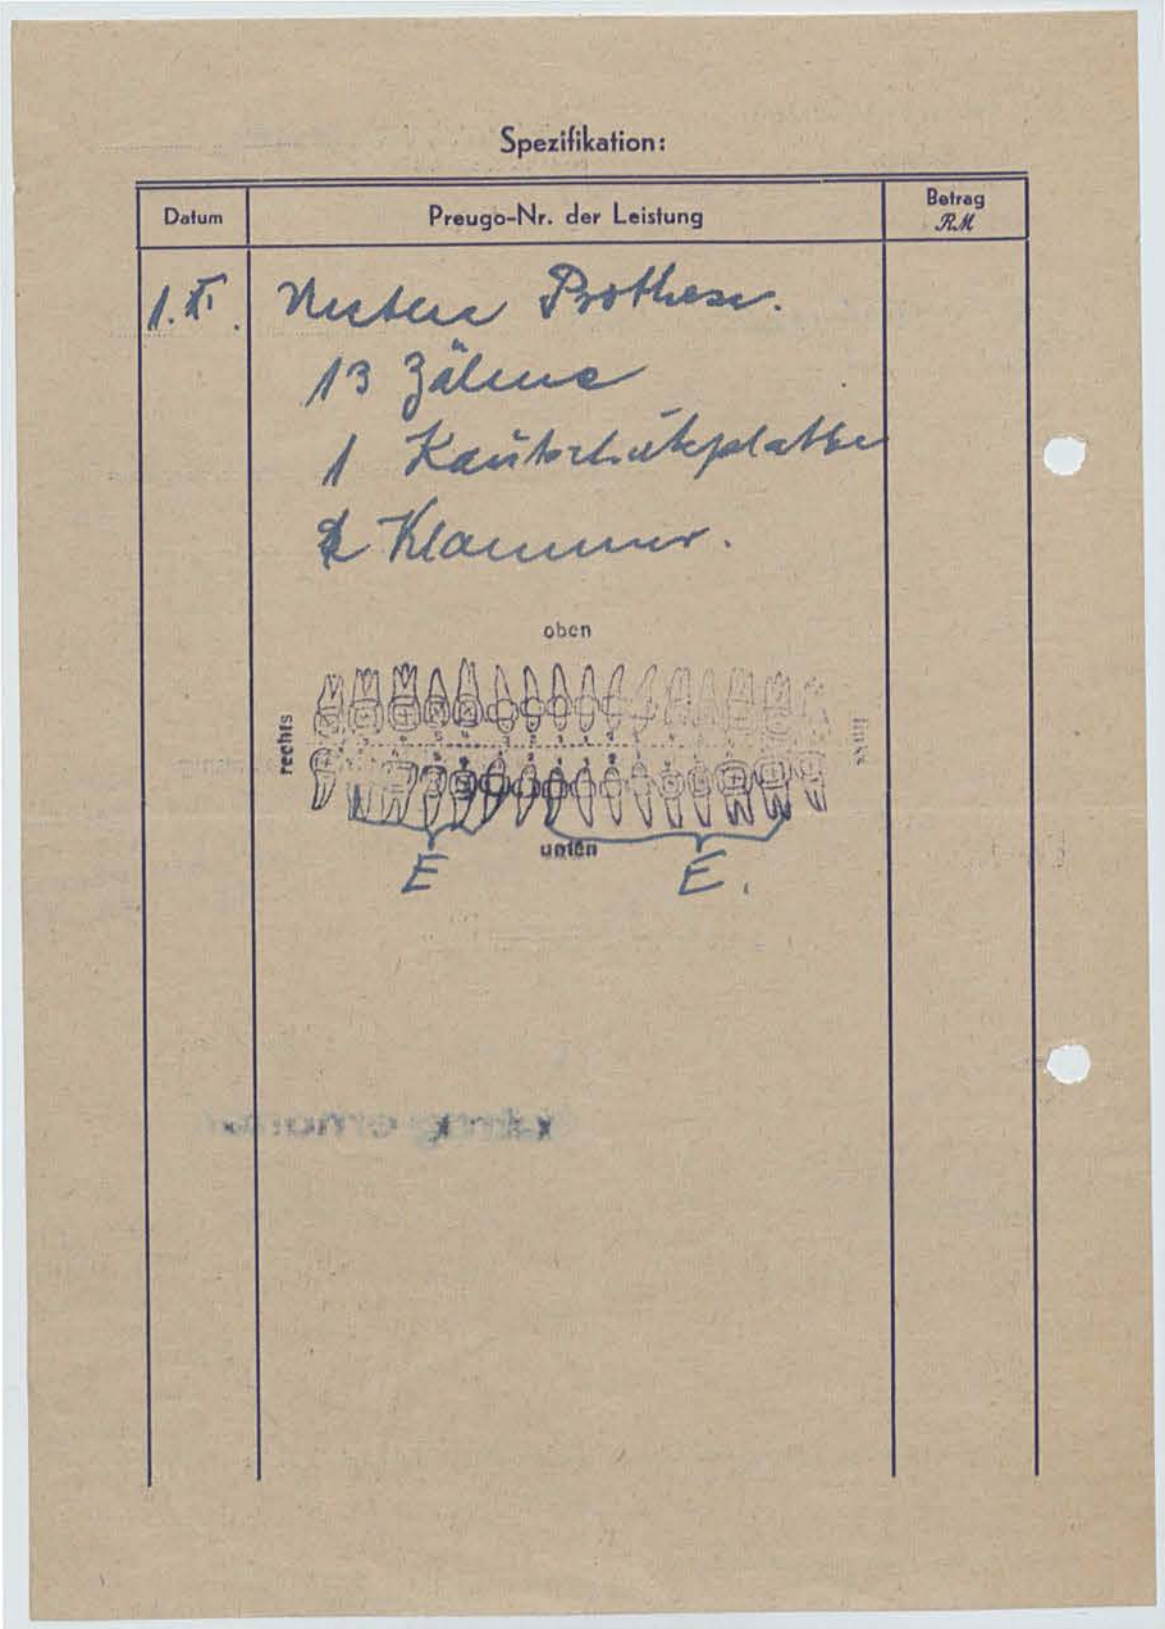 Spezifikation:
Datum
Preugo-Nr. der Leistung
Betrag
RM
1. XI. Untere Prothese.
13 Zähne
1 Kautschukplatte
Klammer.
oben
rechts
links
unten
E E.